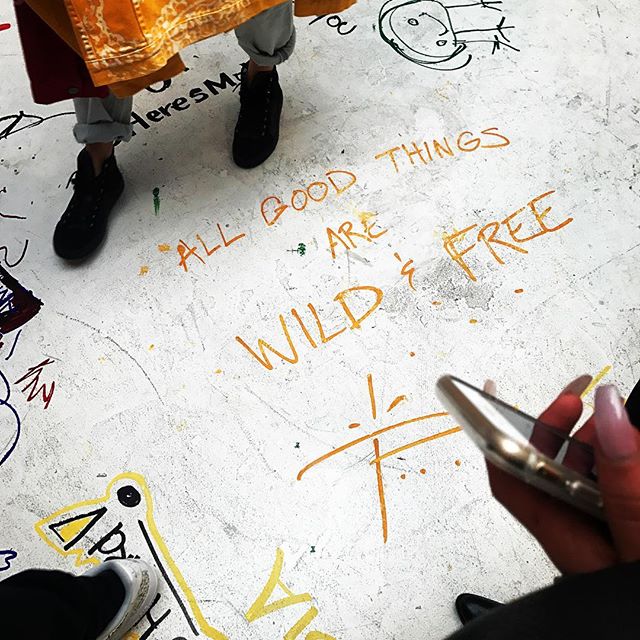 HeresMy
ALL GOOD THINGS
ARE
WILD & FREE